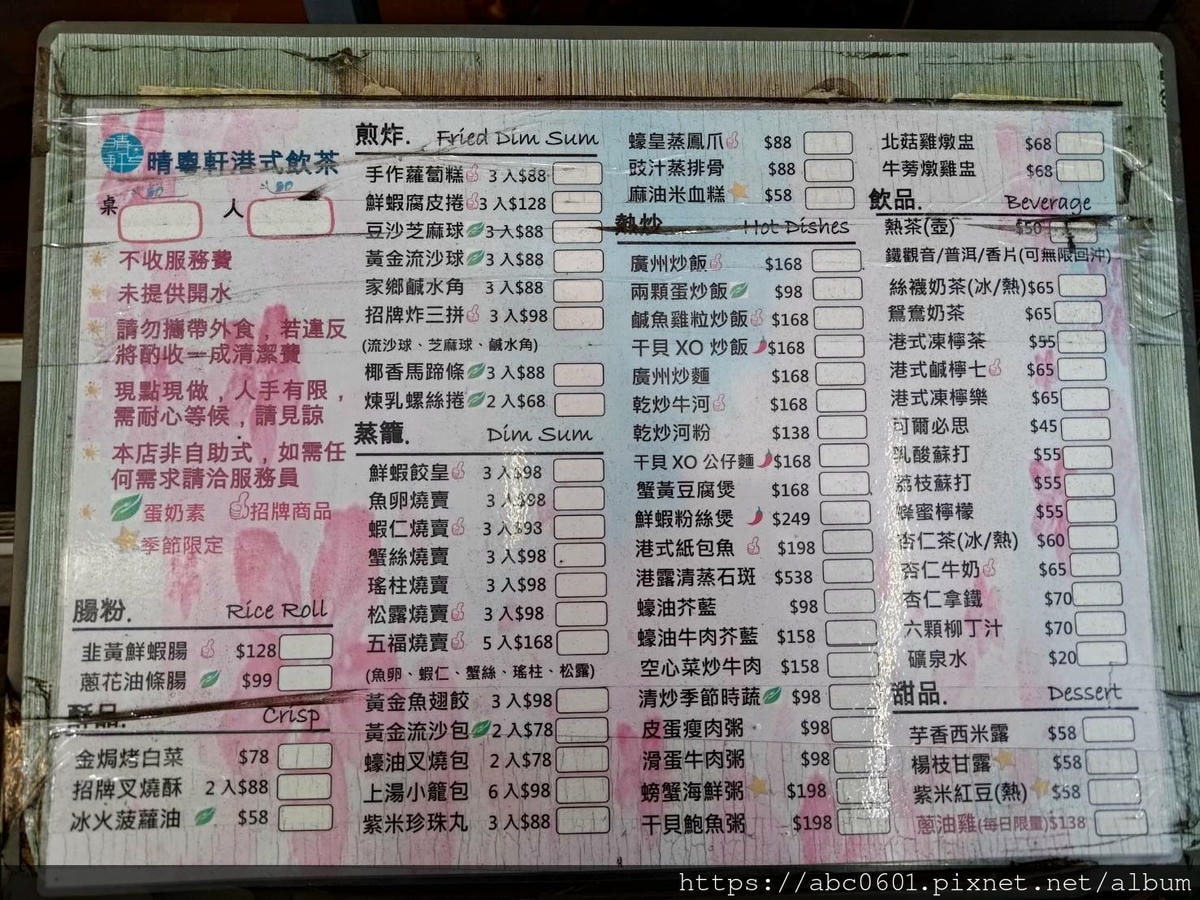 晴粵軒港式飲茶
桌 人
不收服務費
未提供開水
請勿攜帶外食，若違反
將酌收一成清潔費
現點現做，人手有限，
需耐心等候，請見諒
本店非自助式，如需任
何需求請洽服務員
蛋奶素 招牌商品
季節限定
腸粉. Rice Roll
韭黃鮮蝦腸 $128
蔥花油條腸 $99
酥品. Crisp
金焗烤白菜 $78
招牌叉燒酥 2入$88
冰火菠蘿油 $58
煎炸. Fried Dim Sum
手作蘿蔔糕 3入$88
鮮蝦腐皮捲 3入$128
豆沙芝麻球 3入$88
黃金流沙球 3入$88
家鄉鹹水角 3入$88
招牌炸三拼 3入$98
(流沙球、芝麻球、鹹水角)
椰香馬蹄條 3入$88
煉乳螺絲捲 2入$68
蒸籠. Dim Sum
鮮蝦餃皇 3入$98
魚卵燒賣 3入$98
蝦仁燒賣 3入$98
蟹絲燒賣 3入$98
瑤柱燒賣 3入$98
松露燒賣 3入$98
五福燒賣 5入$168
(魚卵、蝦仁、蟹絲、瑤柱、松露)
黃金魚翅餃 3入$98
黃金流沙包 2入$78
蠔油叉燒包 2入$78
上湯小籠包 6入$98
紫米珍珠丸 3入$88
蠔皇蒸鳳爪 $88
豉汁蒸排骨 $88
麻油米血糕 $58
熱炒 Hot Dishes
廣州炒飯 $168
兩顆蛋炒飯 $98
鹹魚雞粒炒飯 $168
干貝 XO 炒飯 $168
廣州炒麵 $168
乾炒牛河 $168
乾炒河粉 $138
干貝 XO 公仔麵 $168
蟹黃豆腐煲 $168
鮮蝦粉絲煲 $249
港式紙包魚 $198
港露清蒸石斑 $538
蠔油芥藍 $98
蠔油牛肉芥藍 $158
空心菜炒牛肉 $158
清炒季節時蔬 $98
皮蛋瘦肉粥 $98
滑蛋牛肉粥 $98
螃蟹海鮮粥 $198
干貝鮑魚粥 $198
北菇雞燉盅 $68
牛蒡燉雞盅 $68
飲品. Beverage
熱茶(壺) $50
鐵觀音/普洱/香片(可無限回沖)
絲襪奶茶(冰/熱)$65
鴛鴦奶茶 $65
港式凍檸茶 $55
港式鹹檸七 $65
港式凍檸樂 $65
可爾必思 $45
乳酸蘇打 $55
荔枝蘇打 $55
蜂蜜檸檬 $55
杏仁茶(冰/熱) $60
杏仁牛奶 $65
杏仁拿鐵 $70
六顆柳丁汁 $70
礦泉水 $20
甜品. Dessert
芋香西米露 $58
楊枝甘露 $58
紫米紅豆(熱) $58
蔥油雞(每日限量)$138
https://abc0601.pixnet.net/album